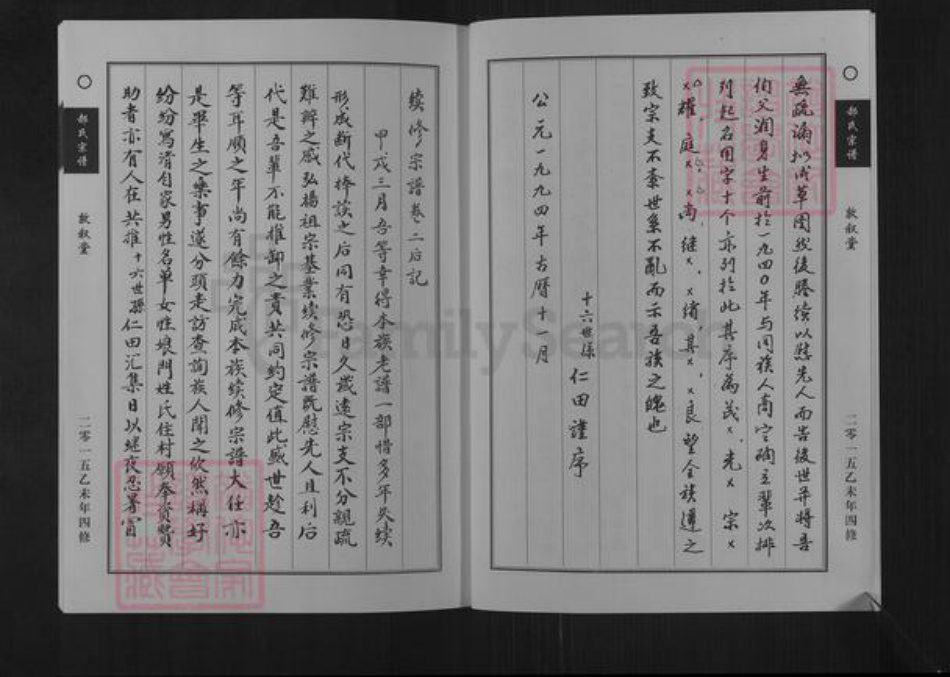 郝氏宗谱
敦叙堂
二零一五乙未年四修
無疏漏拟成草图然後謄续以慰先人而告後世并將吾
伯父润身生前於一九四〇年与同族人商定确立輩次排
列起名用字十个亦列於此其序為茂×、光×宗×
×耀、庭××尚、继×、×绪、其×、×良望全族遵之
致宗支不紊世系不亂而示吾族之魂也
十六世孫仁田谨序
公元一九九四年古曆十一月
续修宗譜卷二后記
甲戌三月吾等幸得本族老譜一部惜多年失续
形成断代捧读之后同有恐日久歲遠宗支不分親疏
难辨之感弘揚祖宗基業续修宗譜既慰先人且利后
代是吾輩不能推卸之責共同約定值此盛世趁吾
等耳顺之年尚有餘力完成本族续修宗譜大任亦
是畢生之樂事遂分頭走访查詢族人聞之欣然稱好
纷纷寫清自家男性名单女性娘門姓氏住村願奉資費
助者亦有人在共推十六世孫仁田汇集日以继夜忍暑
郝氏宗谱
敦叙堂
二零一五乙未年四修
FamilySearch